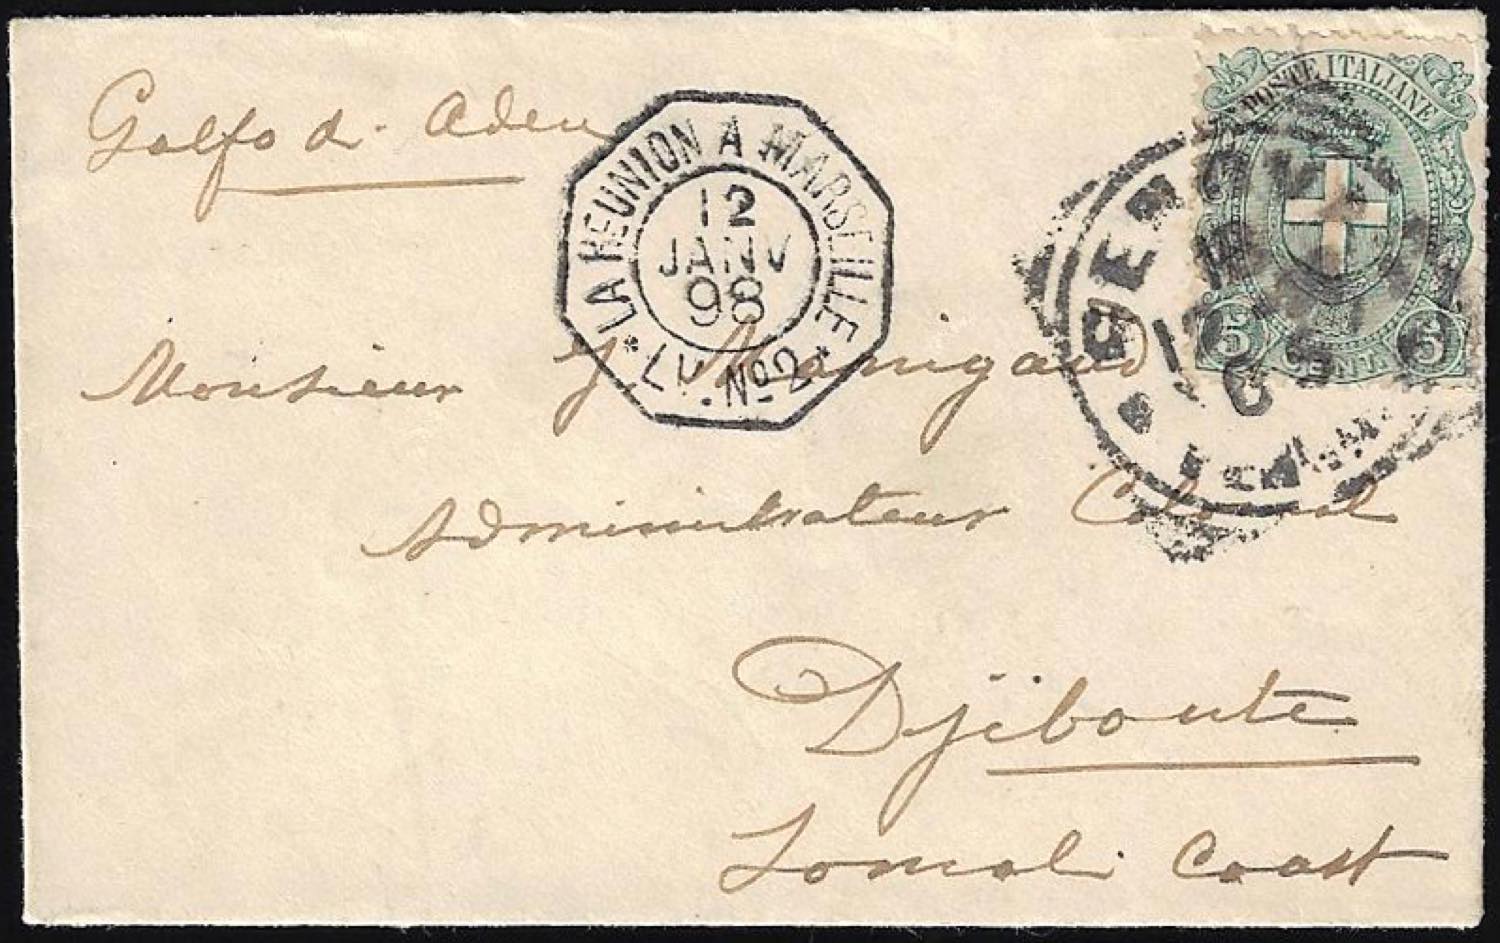 Golfo di Aden
POSTE ITALIANE
5 CENT. 5
LA REUNION A MARSEILLE
12
JANV
98
* L.V. No 2 *
GENOVA
Monsieur J. Manigaud
Administrateur Colonial
Djiboute
Somali Coast